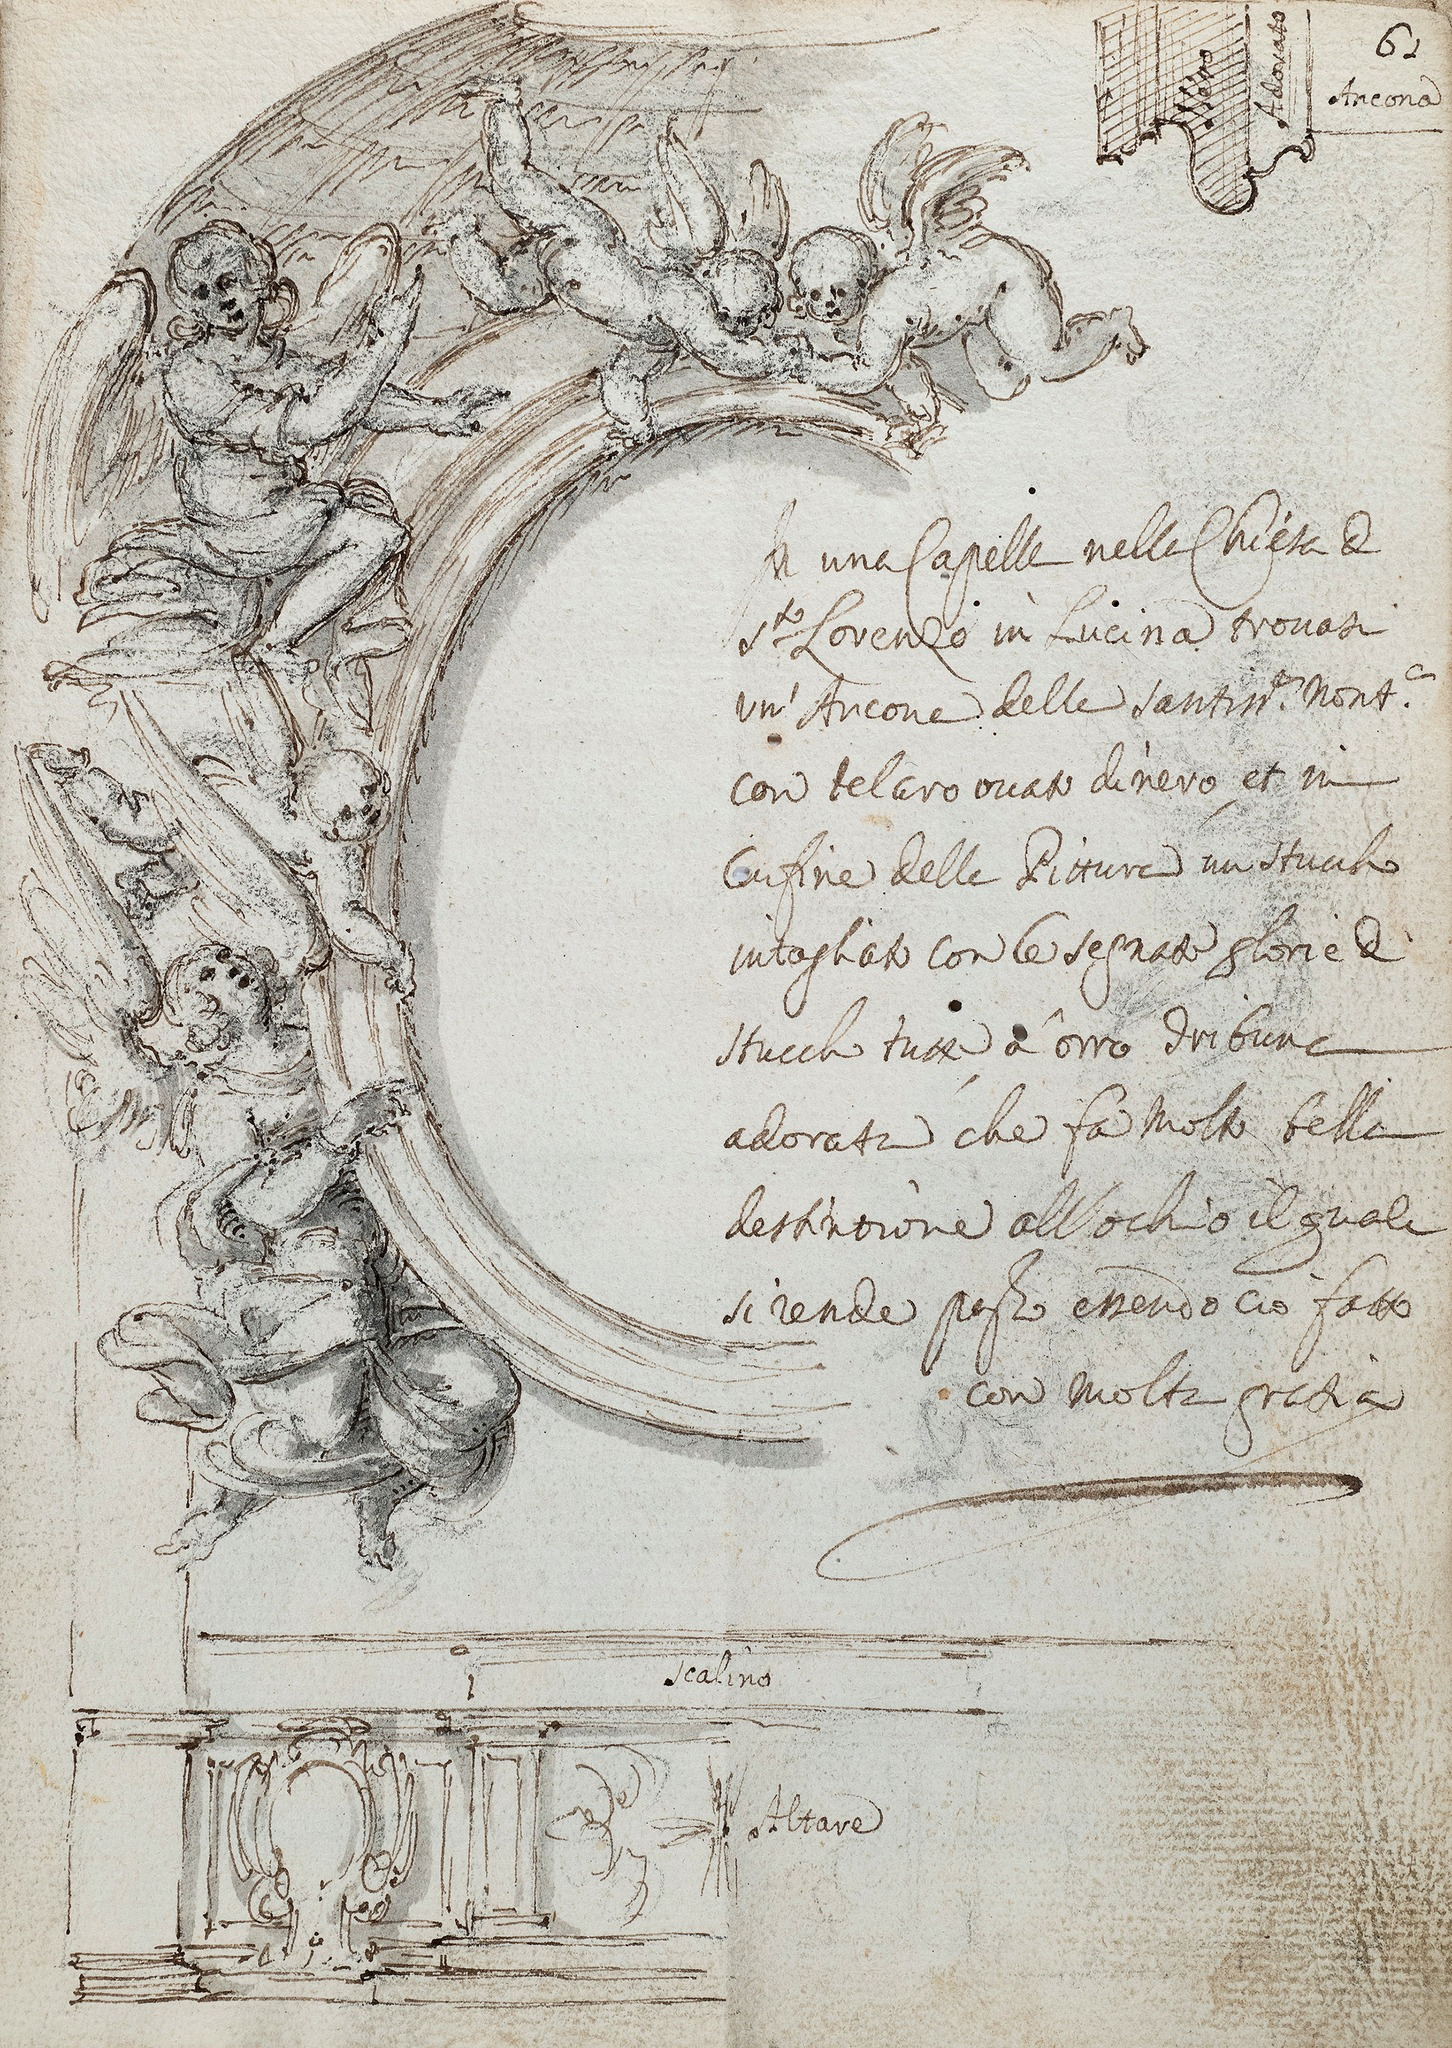 61
Ancona
Nero
Adorato
In una Capella nella Chiesa di
S.to Lorenzo in Lucina trouasi
un' Ancona della Santiss.
con telaro ouato di nero et in
Confine della Pittura un stucho
intagliato con le segnate glorie di
stucho tutte à orro Tribuna
adorata che fa molto bella
destinzione all'ochio il quale
si rende essendo ciò fatto
con molta grazia
Scalino
Altare